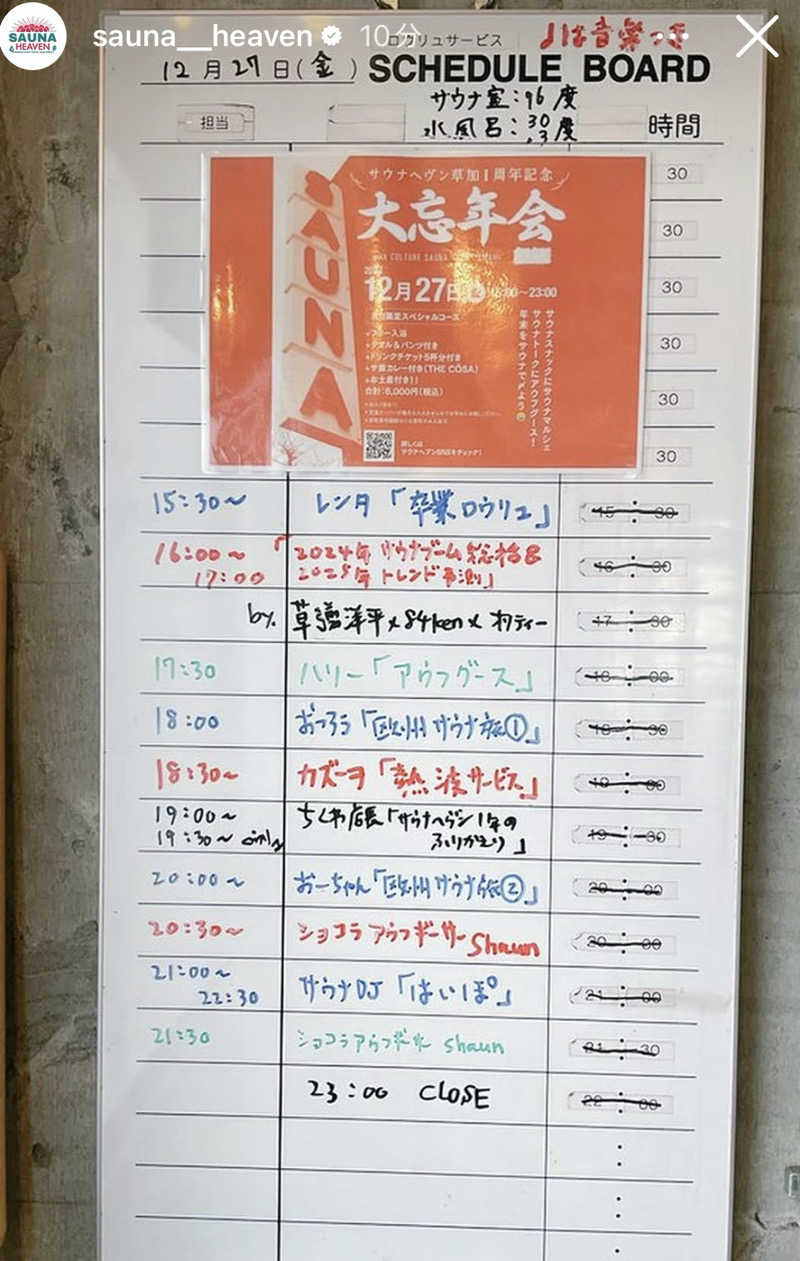 SAUNA HEAVEN
sauna__heaven 10分
ロウリュサービス
♪は音楽つき
12月27日(金) SCHEDULE BOARD
サウナ室:96度
水風呂:
度
担当
時間
30
サウナヘヴン草加1周年記念
大忘年会
SAUNA
30
12月27日
~23:00
サウナスナックにサウナマルシェ
サウナトークにアウフグース!
年末をサウナで〆よう
30
限定スペシャルコース
タオル&パンツ付き
ドリンクチケット5杯分付き
カレー付き(THE CÔSA)
お土産付き!!
合計:6,000円(税込)
30
30
詳しくは
サウナヘブンSNSをチェック!
30
15:30~ レンタ「卒業ロウリュ」 15:30
16:00~17:00 「2024年サウナブーム総括&
2025年トレンド予測」 16:30
by. 草彅洋平×84ken× 17:30
17:30 ハリー「アウフグース」 18:00
18:00 おつろう「欧州サウナ旅①」 18:30
18:30~ カズーヲ「熱波サービス」 19:00
19:00~ ちくわ店長「サウナヘヴン1年の
19:30~ ふりかえり」 19:30
20:00~ おーちゃん「欧州サウナ旅②」 20:00
20:30~ ショコラアウフギーサーShaun 20:00
21:00~
22:30 サウナDJ「はいぽ」 21:00
21:30 ショコラアウフギーサー shaun 21:30
23:00 CLOSE 22:00